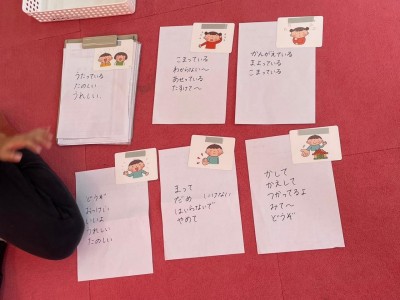 うたっている
たのしい
うれしい
こまっている
わからない〜
あせっている
たすけて〜
かんがえている
まよっている
こまっている
どうぞ
おっけい
いいよ
うれしい
たのしい
まって
だめ いけない
はいらないで
やめて
かして
かえして
つかってるよ
みて〜
どうぞ